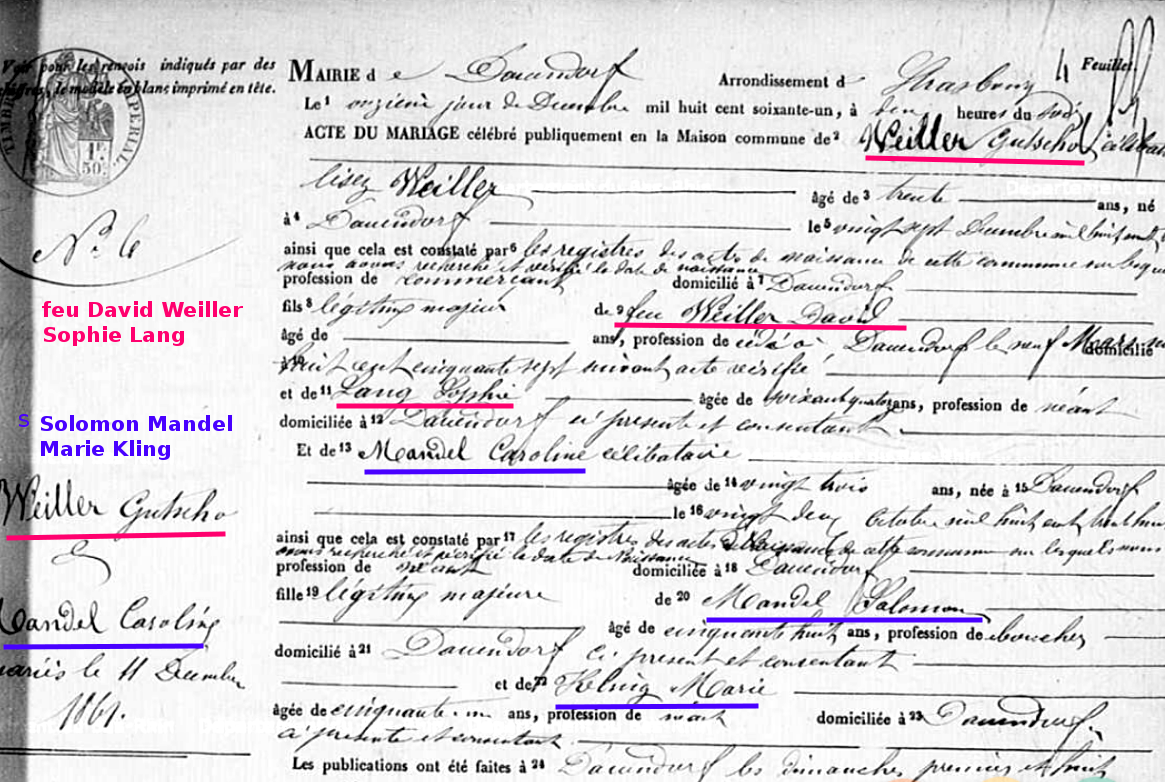 Voir pour les renvois indiqués par des
chiffres, le modèle en blanc imprimé en tête.
TIMBRE IMPERIAL
1F
50c
MAIRIE de Dauendorf Arrondissement d Strasbourg 4 Feuillet.
Le 1 onzième jour de Decembre mil huit cent soixante-un, à heures du soir
ACTE DU MARIAGE célébré publiquement en la Maison commune de 2 Weiller Gutscho
lisez Weiller âgé de 3 trente ans, né
à 4 Dauendorf le 5 vingt sept Decembre mil huit cent
ainsi que cela est constaté par 6 les registres des actes de naissance de cette commune sur lesquels
nous avons recherché et vérifié la date de naissance
profession de commerçant domicilié à 7 Dauendorf
fils 8 légitime majeur de 9 feu Weiller David
âgé de ans, profession de décédé à Dauendorf le neuf Mars mil domicilié
à 10 huit cent cinquante sept suivant acte vérifié
et de 11 Lang Sophie âgée de soixante quatre ans, profession de néant
domiciliée à 12 Dauendorf ci présente et consentante
Et de 13 Mandel Caroline célibataire
âgée de 14 vingt trois ans, née à 15 Dauendorf
le 16 vingt deux Octobre mil huit cent trente huit
ainsi que cela est constaté par 17 les registres des actes de Naissance de cette commune sur lesquels nous
avons recherché et vérifié la date de Naissance
profession de néant domiciliée à 18 Dauendorf
fille 19 légitime majeure de 20 Mandel Salomon
âgé de cinquante huit ans, profession de boucher
domicilié à 21 Dauendorf ci présent et consentant
et de 22 Marie
âgée de cinquante ans, profession de néant domiciliée à 23 Dauendorf
ci présente et consentante
Les publications ont été faites à 24 Dauendorf les dimanches premier et huit
N.° 6
feu David Weiller
Sophie Lang
s Solomon Mandel
Marie Kling
Weiller Gutscho
&
Mandel Caroline
mariés le 11 Decembre
1861.